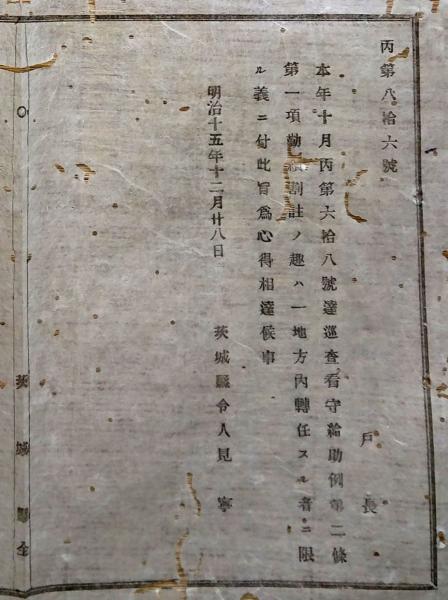 丙第八拾六號
戸長
本年十月丙第六拾八號達巡査看守給助例第二條
第一項勤續割註ノ趣ハ一地方内轉任スル者ニ限
ル義ニ付此旨爲心得相達候事
明治十五年十二月廿八日
茨城縣令人見寧
〇
茨城縣